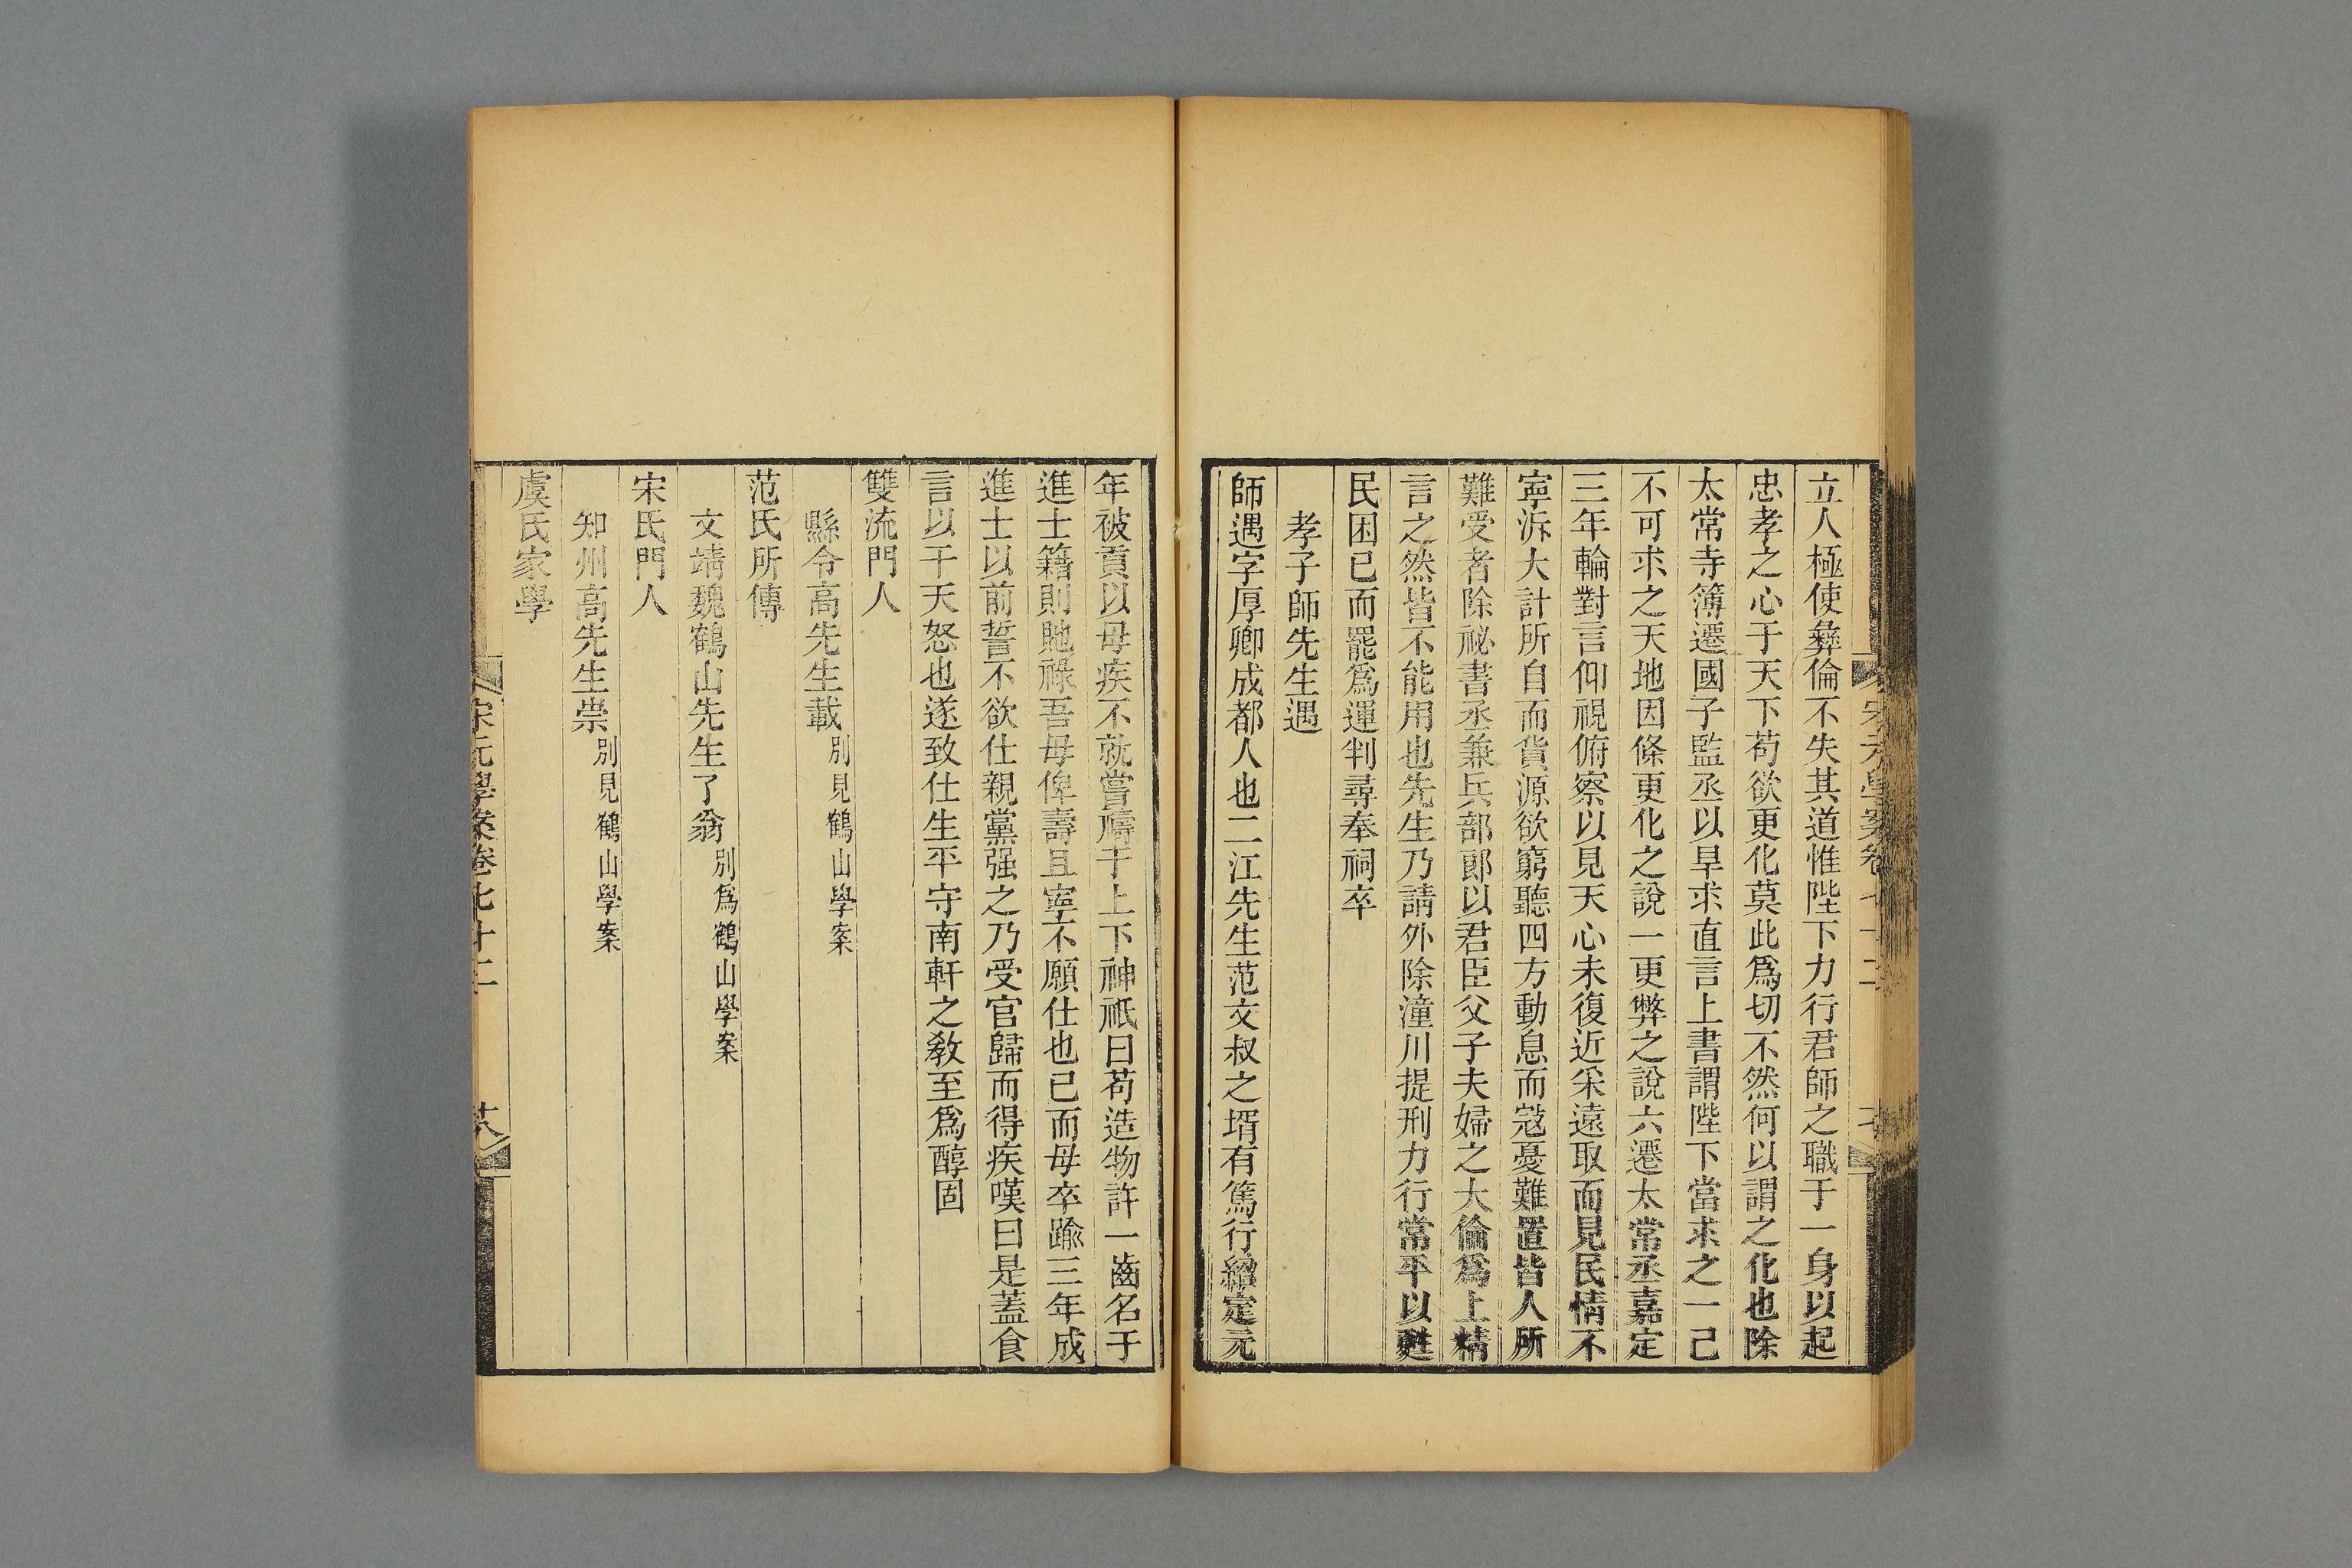 立人極使彝倫不失其道惟陛下力行君師之職于一身以起
忠孝之心于天下苟欲更化莫此爲切不然何以謂之化也除
太常寺簿遷國子監丞以旱求直言上書謂陛下當求之一己
不可求之天地因條更化之說一更弊之說六遷太常丞嘉定
三年輪對言仰視俯察以見天心未復近采遠取而見民情不
寧泝大計所自而貨源欲窮聽四方動息而寇憂難置皆人所
難受者除祕書丞兼兵部郎以君臣父子夫婦之大倫爲上精
言之然皆不能用也先生乃請外除潼川提刑力行常平以甦
民困已而罷爲運判尋奉祠卒
孝子師先生遇
師遇字厚卿成都人也二江先生范文叔之壻有篤行紹定元
年被貢以母疾不就嘗禱于上下神祇曰苟造物許一齒名于
進士籍則貤祿吾母俾壽且寧不願仕也已而母卒踰三年成
進士以前誓不欲仕親黨强之乃受官歸而得疾嘆曰是蓋食
言以干天怒也遂致仕生平守南軒之敎至爲醇固
雙流門人
縣令高先生載別見鶴山學案
范氏所傳
文靖魏鶴山先生了翁別爲鶴山學案
宋氏門人
知州高先生崇別見鶴山學案
虞氏家學
宋元學案卷七十二